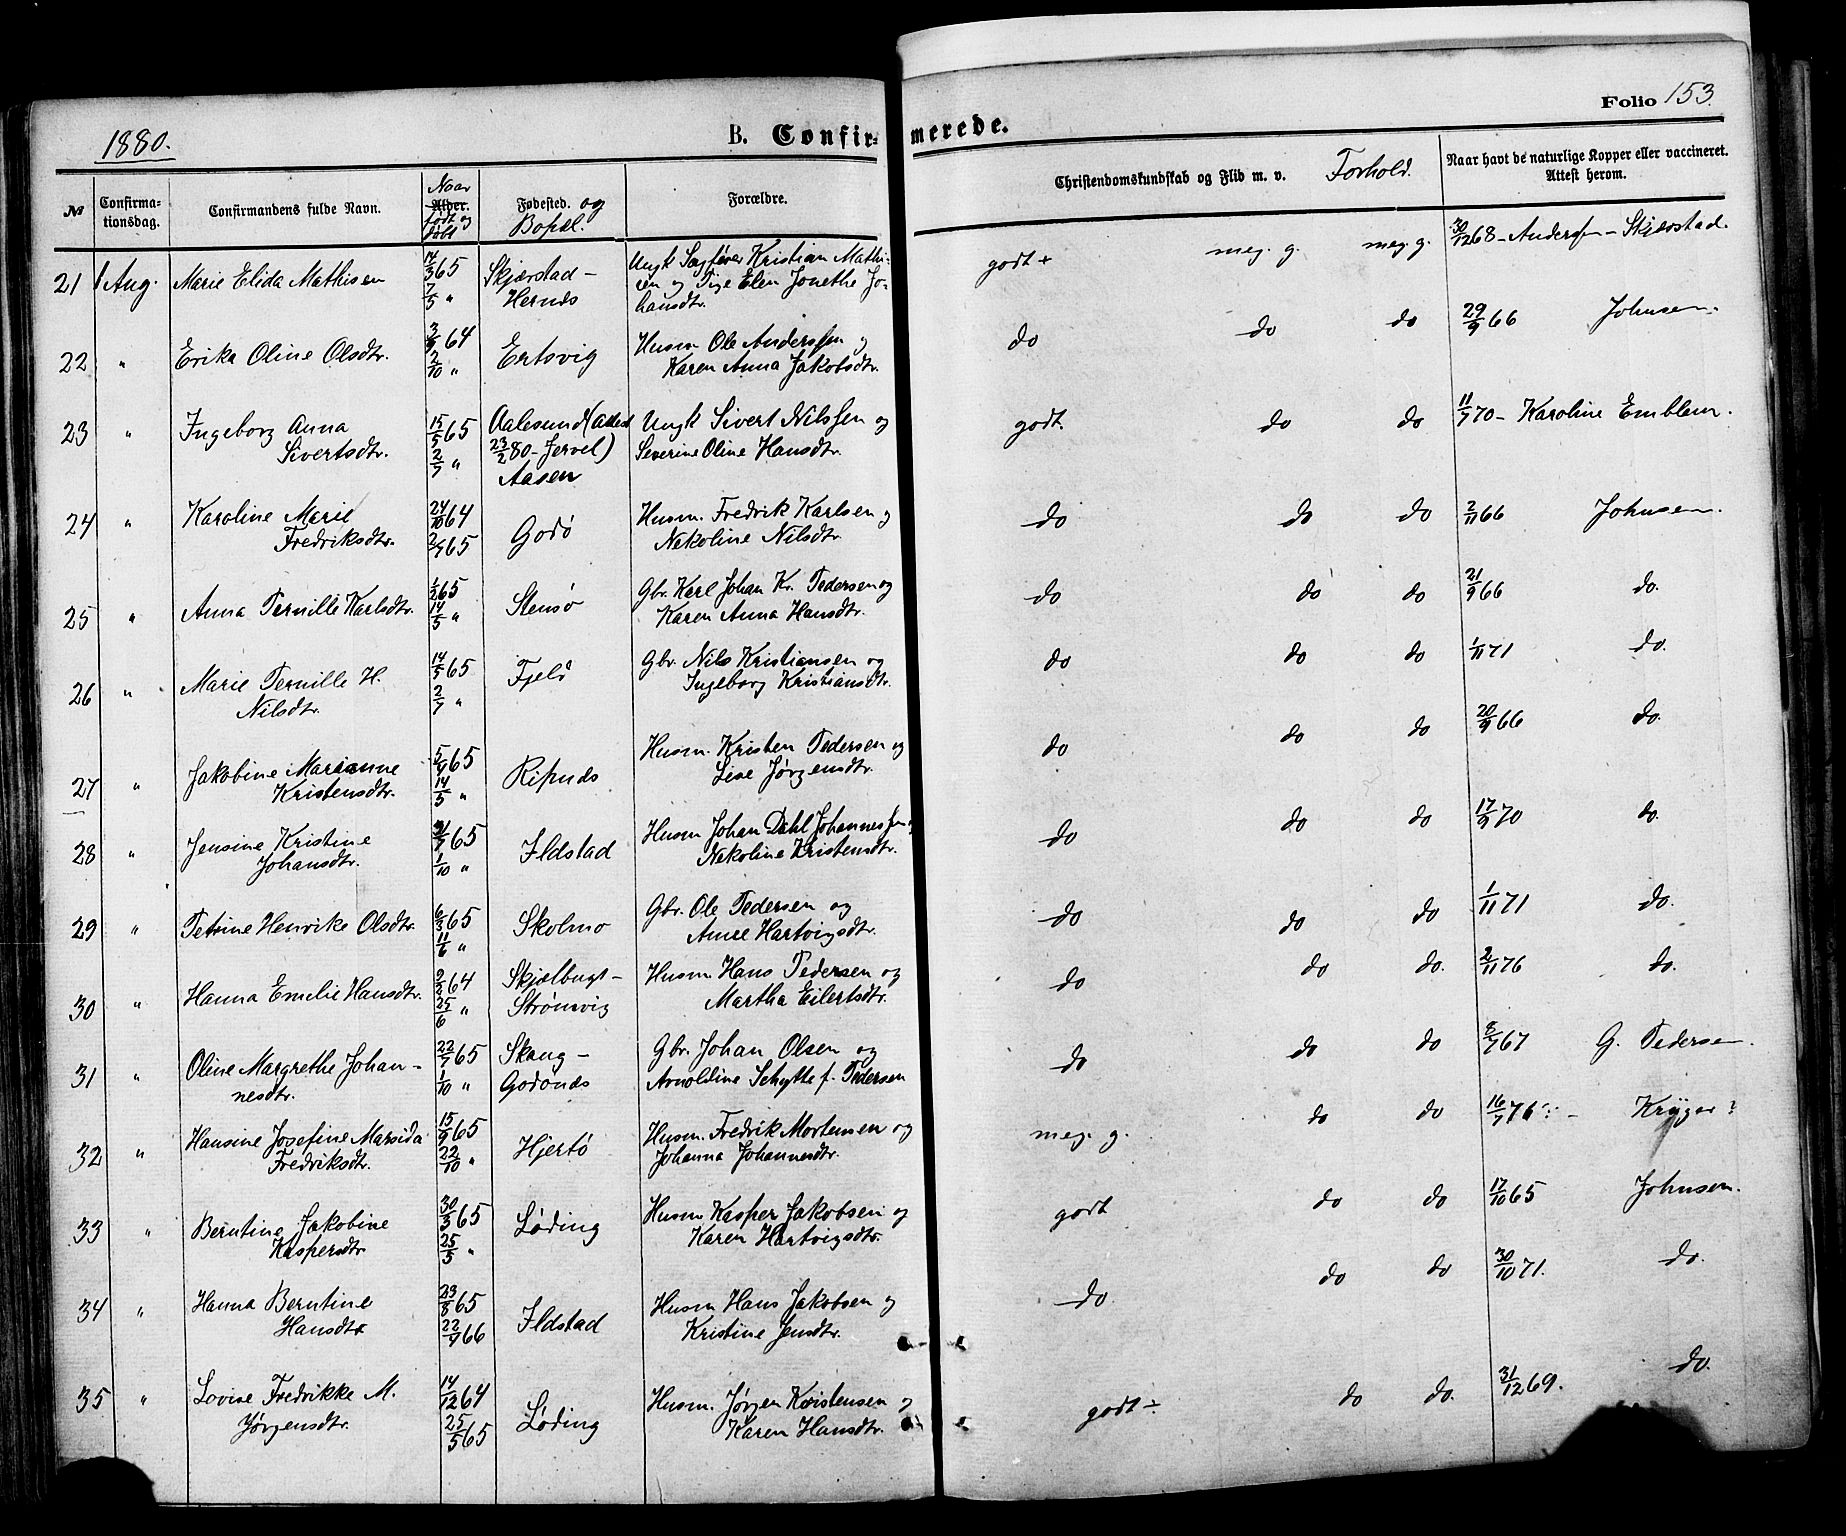 1880.
B. Confirmerede.
Folio 153.
№
Confirmationsdag.
Confirmandens fulde Navn.
Naar Alder. født og døbt
Fødested. og Bopæl.
Forældre.
Christendomskundskab og Flid m. v.
Forhold.
Naar havt de naturlige Kopper eller vaccineret. Attest herom.
21 1 Aug. Marie Elida Mathisen 14/3 65 Skjærstad – Ungk Sagfører Kristian Mathi- godt + meg. g. meg. g. 30/12 68 – Anderssen – Skjærstad.
7/5 " Hernæs sen og Pige Elen Jonethe Jo-
hansdtr.
22 " Erika Oline Olsdtr. 64 Ertsvig Husm Ole Anderssen og do do do 29/9 66 Johnsen.
2/10 " Karen Anna Jakobsdtr.
23 " Ingeborg Anna 15/5 65 Aalesund (Attest Ungk Sivert Nilssen og godt. do do 11/7 70 – Karoline Emblem.
Sivertsdtr. 2/7 " 23/2 80 – Jervel) Severine Oline Hansdtr.
Aasen
24 " Karoline Marie 24/10 64 Godø Husm. Fredrik Karlsen og do do do 2/11 66 Johnsen.
Fredriksdtr. 65 Nekoline Nilsdtr.
25 " Anna Pernille Karlsdtr. 1/2 65 Stensø Gbr. Karl Johan Kr. Pedersen og do do do 21/9 66 do.
14/5 " Karen Anna Hansdtr.
26 " Marie Pernille H. 14/5 65 Fjeld Gbr. Nils Kristiansen og do do do 1/11 71 do.
Nilsdtr. 2/7 " Ingeborg Kristiansdtr.
27 " Jakobine Marianne 5/4 65 Ripnæs Husm. Kristen Pedersen og do do do 20/9 66 do.
Kristensdtr. 14/5 " Lise Jørgensdtr.
28 " Jensine Kristine 31/7 65 Ildstad Husm Johan Dahl Johannessen do do do 17/9 70 do.
Johansdtr. 1/10 " Nekoline Kristensdtr.
29 " Petrine Henrike Olsdtr. 6/3 65 Skolmo Gbr. Ole Pedersen og do do do 1/11 71 do.
11/6 " Anne Hartvigsdtr.
30 " Hanna Emelie Hansdtr. 2/2 64 Skjelbugt – Husm Hans Pedersen og do do do. 2/11 76 do.
25/6 " Strømvig Martha Eilertsdtr.
31 " Oline Margrethe Johan- 22/7 65 Skaug – Gbr. Johan Olsen og do do do 8/7 67 G. Pedersen.
nesdtr. 1/10 " Godønæs Arnoldine Schytte f. Pedersen
32 " Hansine Josefine Marsida 15/9 65 Hjertø Husm. Fredrik Mortensen og meg. g. do do 16/7 76 – Krüger?
Fredriksdtr. 22/10 " Johanna Johannesdtr.
33 " Berntine Jakobine 30/3 65 Løding Husm Kasper Jakobsen og godt do do 17/10 65 Johnsen.
Kaspersdtr 25/5 " Karen Hartvigsdtr.
34 " Hanna Berntine 23/8 65 Ildstad Husm Hans Jakobsen og do. do do 30/10 71. do.
Hansdtr 22/4 66 Kristine Jensdtr.
35 " Lovise Fredrikke M. 14/12 64 Løding Husm. Jørgen Kristensen og godt ÷ do do. 31/12 69. do.
Jørgensdtr. 25/5 65 Karen Hansdtr.